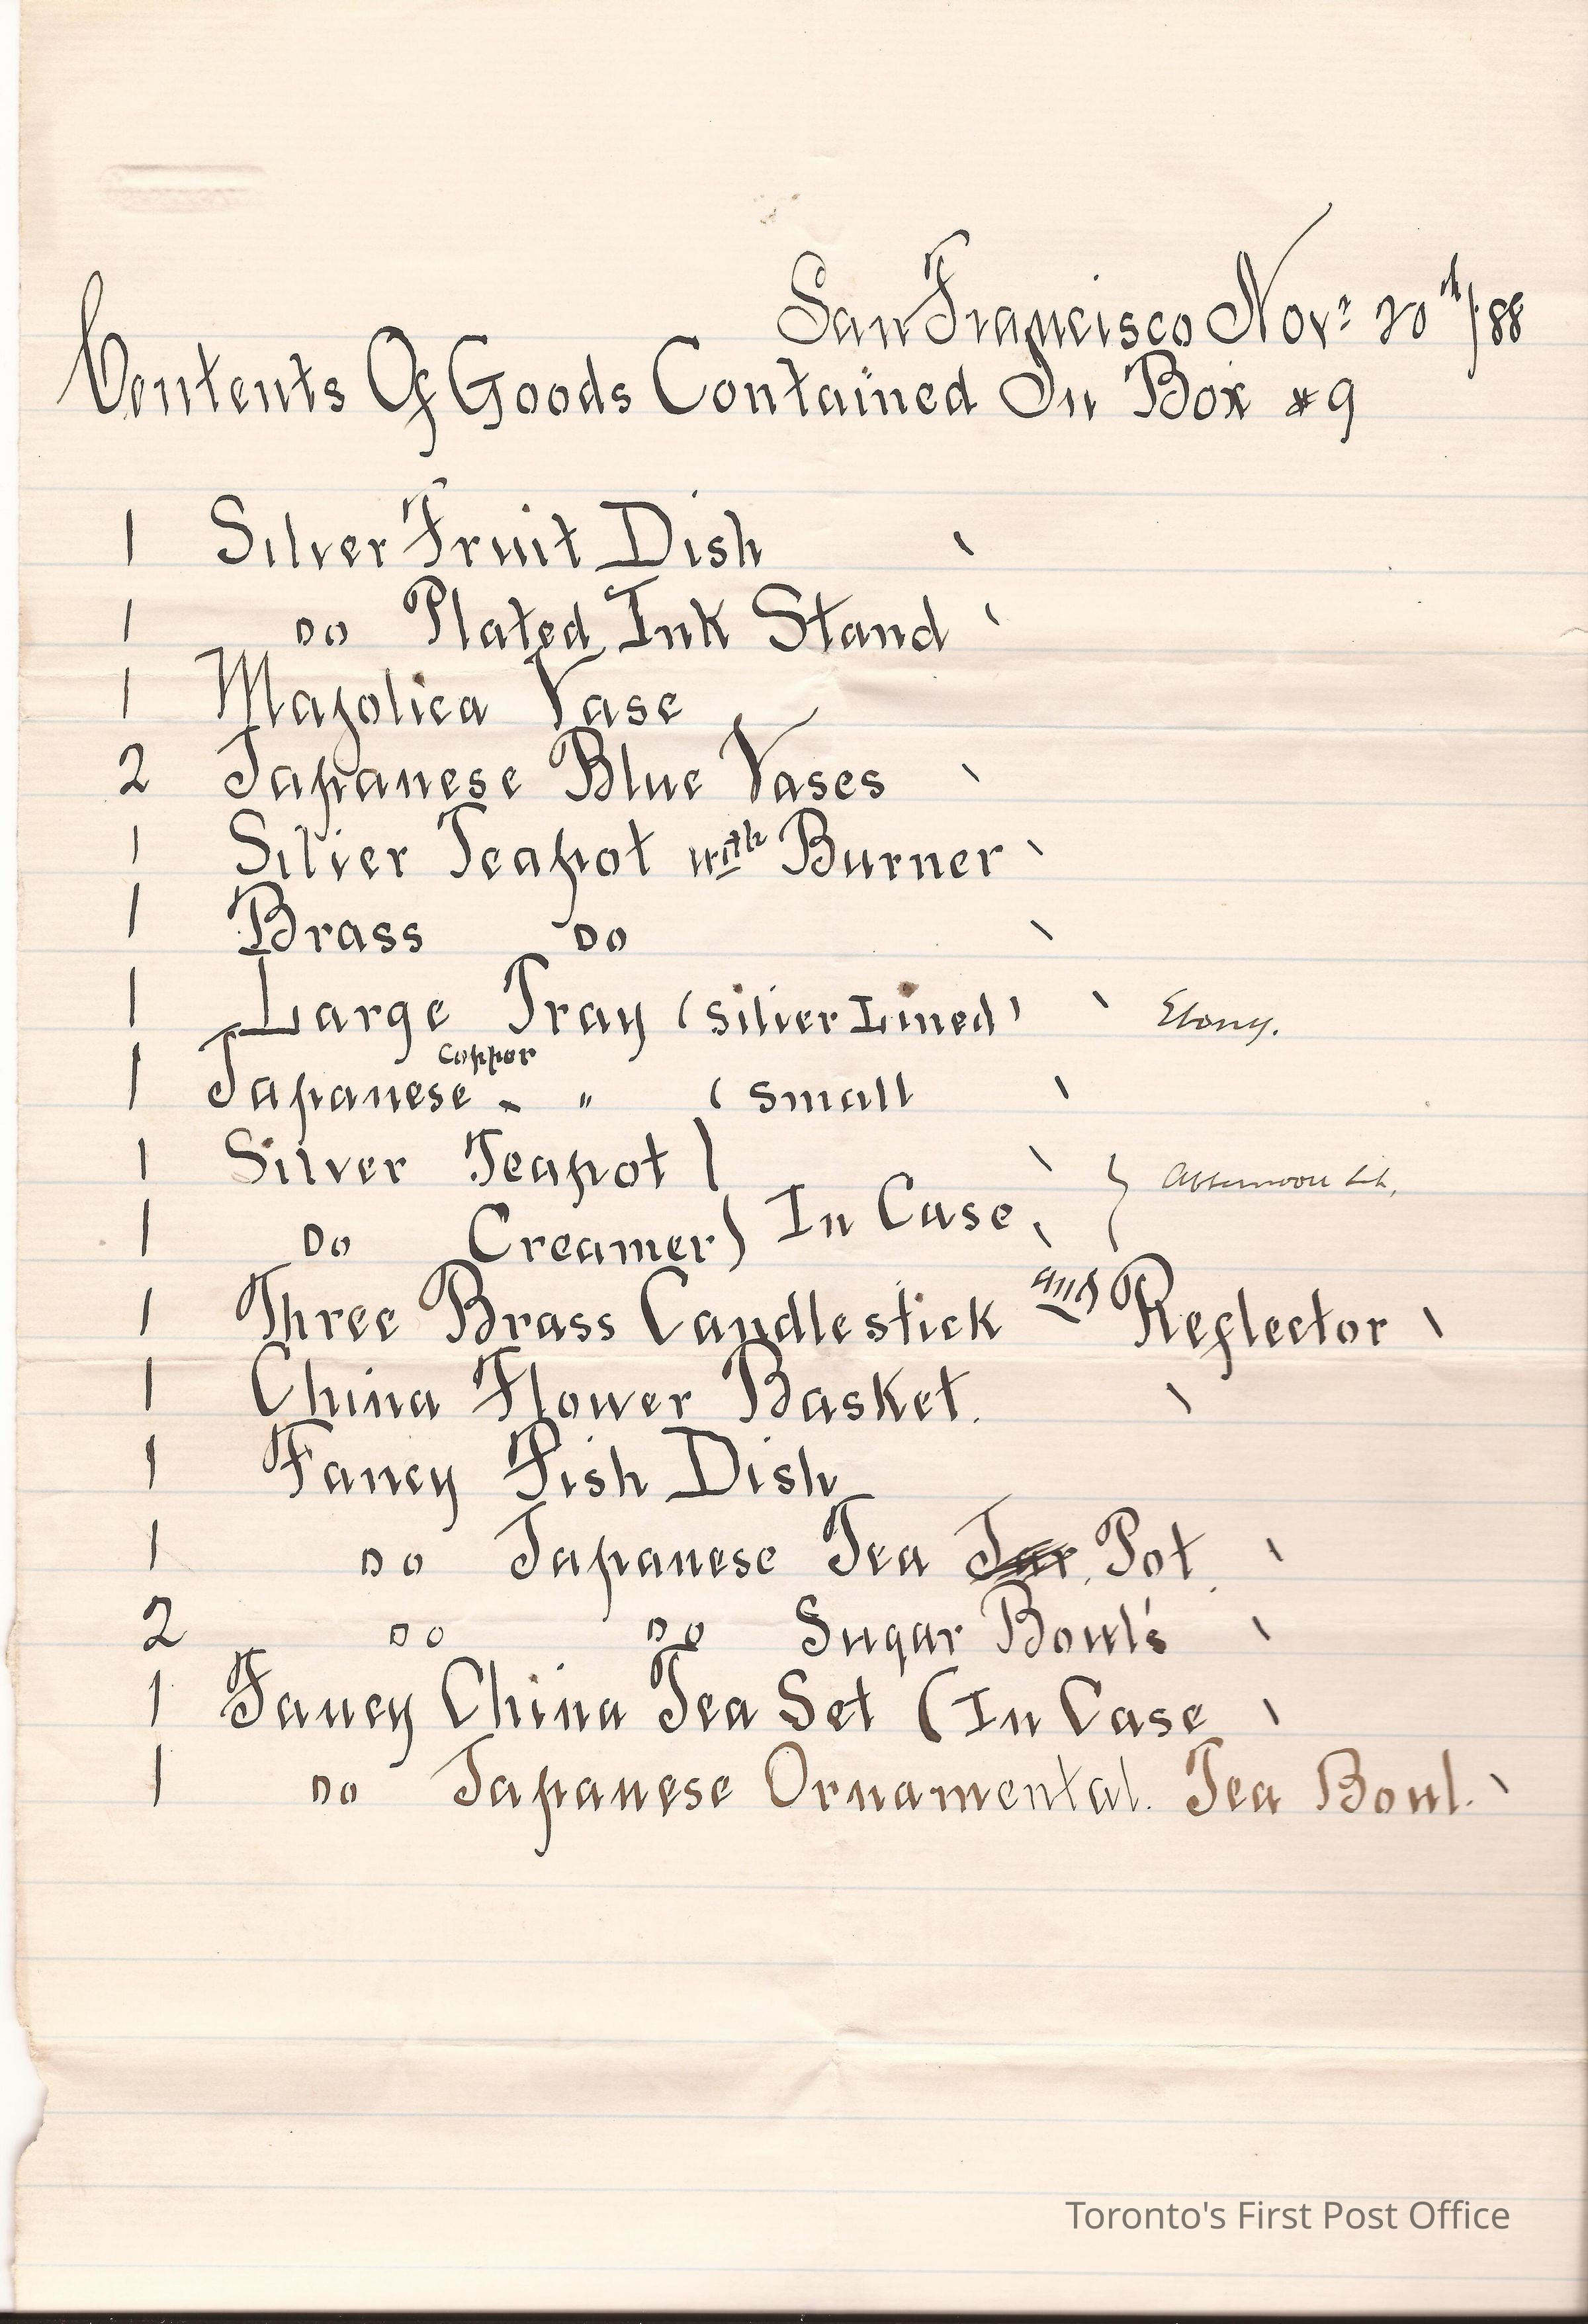 San Francisco Novr 20th/88
Contents Of Goods Contained In Box #9
1 Silver Fruit Dish
1 Do Plated Ink Stand
1 Majolica Vase
2 Japanese Blue Vases
1 Silver Teapot with Burner
1 Brass Do
1 Large Tray (Silver Lined) Ebony.
Copper
1 Japanese " (Small
1 Silver Teapot }
1 Do Creamer) In Case } Afternoon
1 Three Brass Candlestick and Reflector
1 China Flower Basket.
1 Fancy Fish Dish
1 Do Japanese Tea Jar. Pot.
2 Do Do Sugar Bowl's
1 Fancy China Tea Set (In Case
1 Do Japanese Ornamental. Tea Bowl.
Toronto's First Post Office